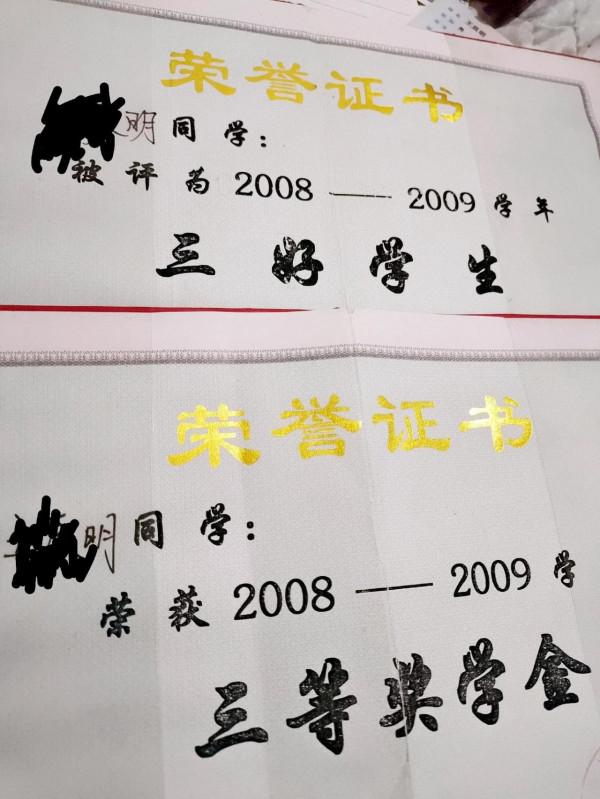 荣誉证书
明同学:
被评为2008——2009学年
三好学生
荣誉证书
明同学:
荣获2008——2009学
三等奖学金